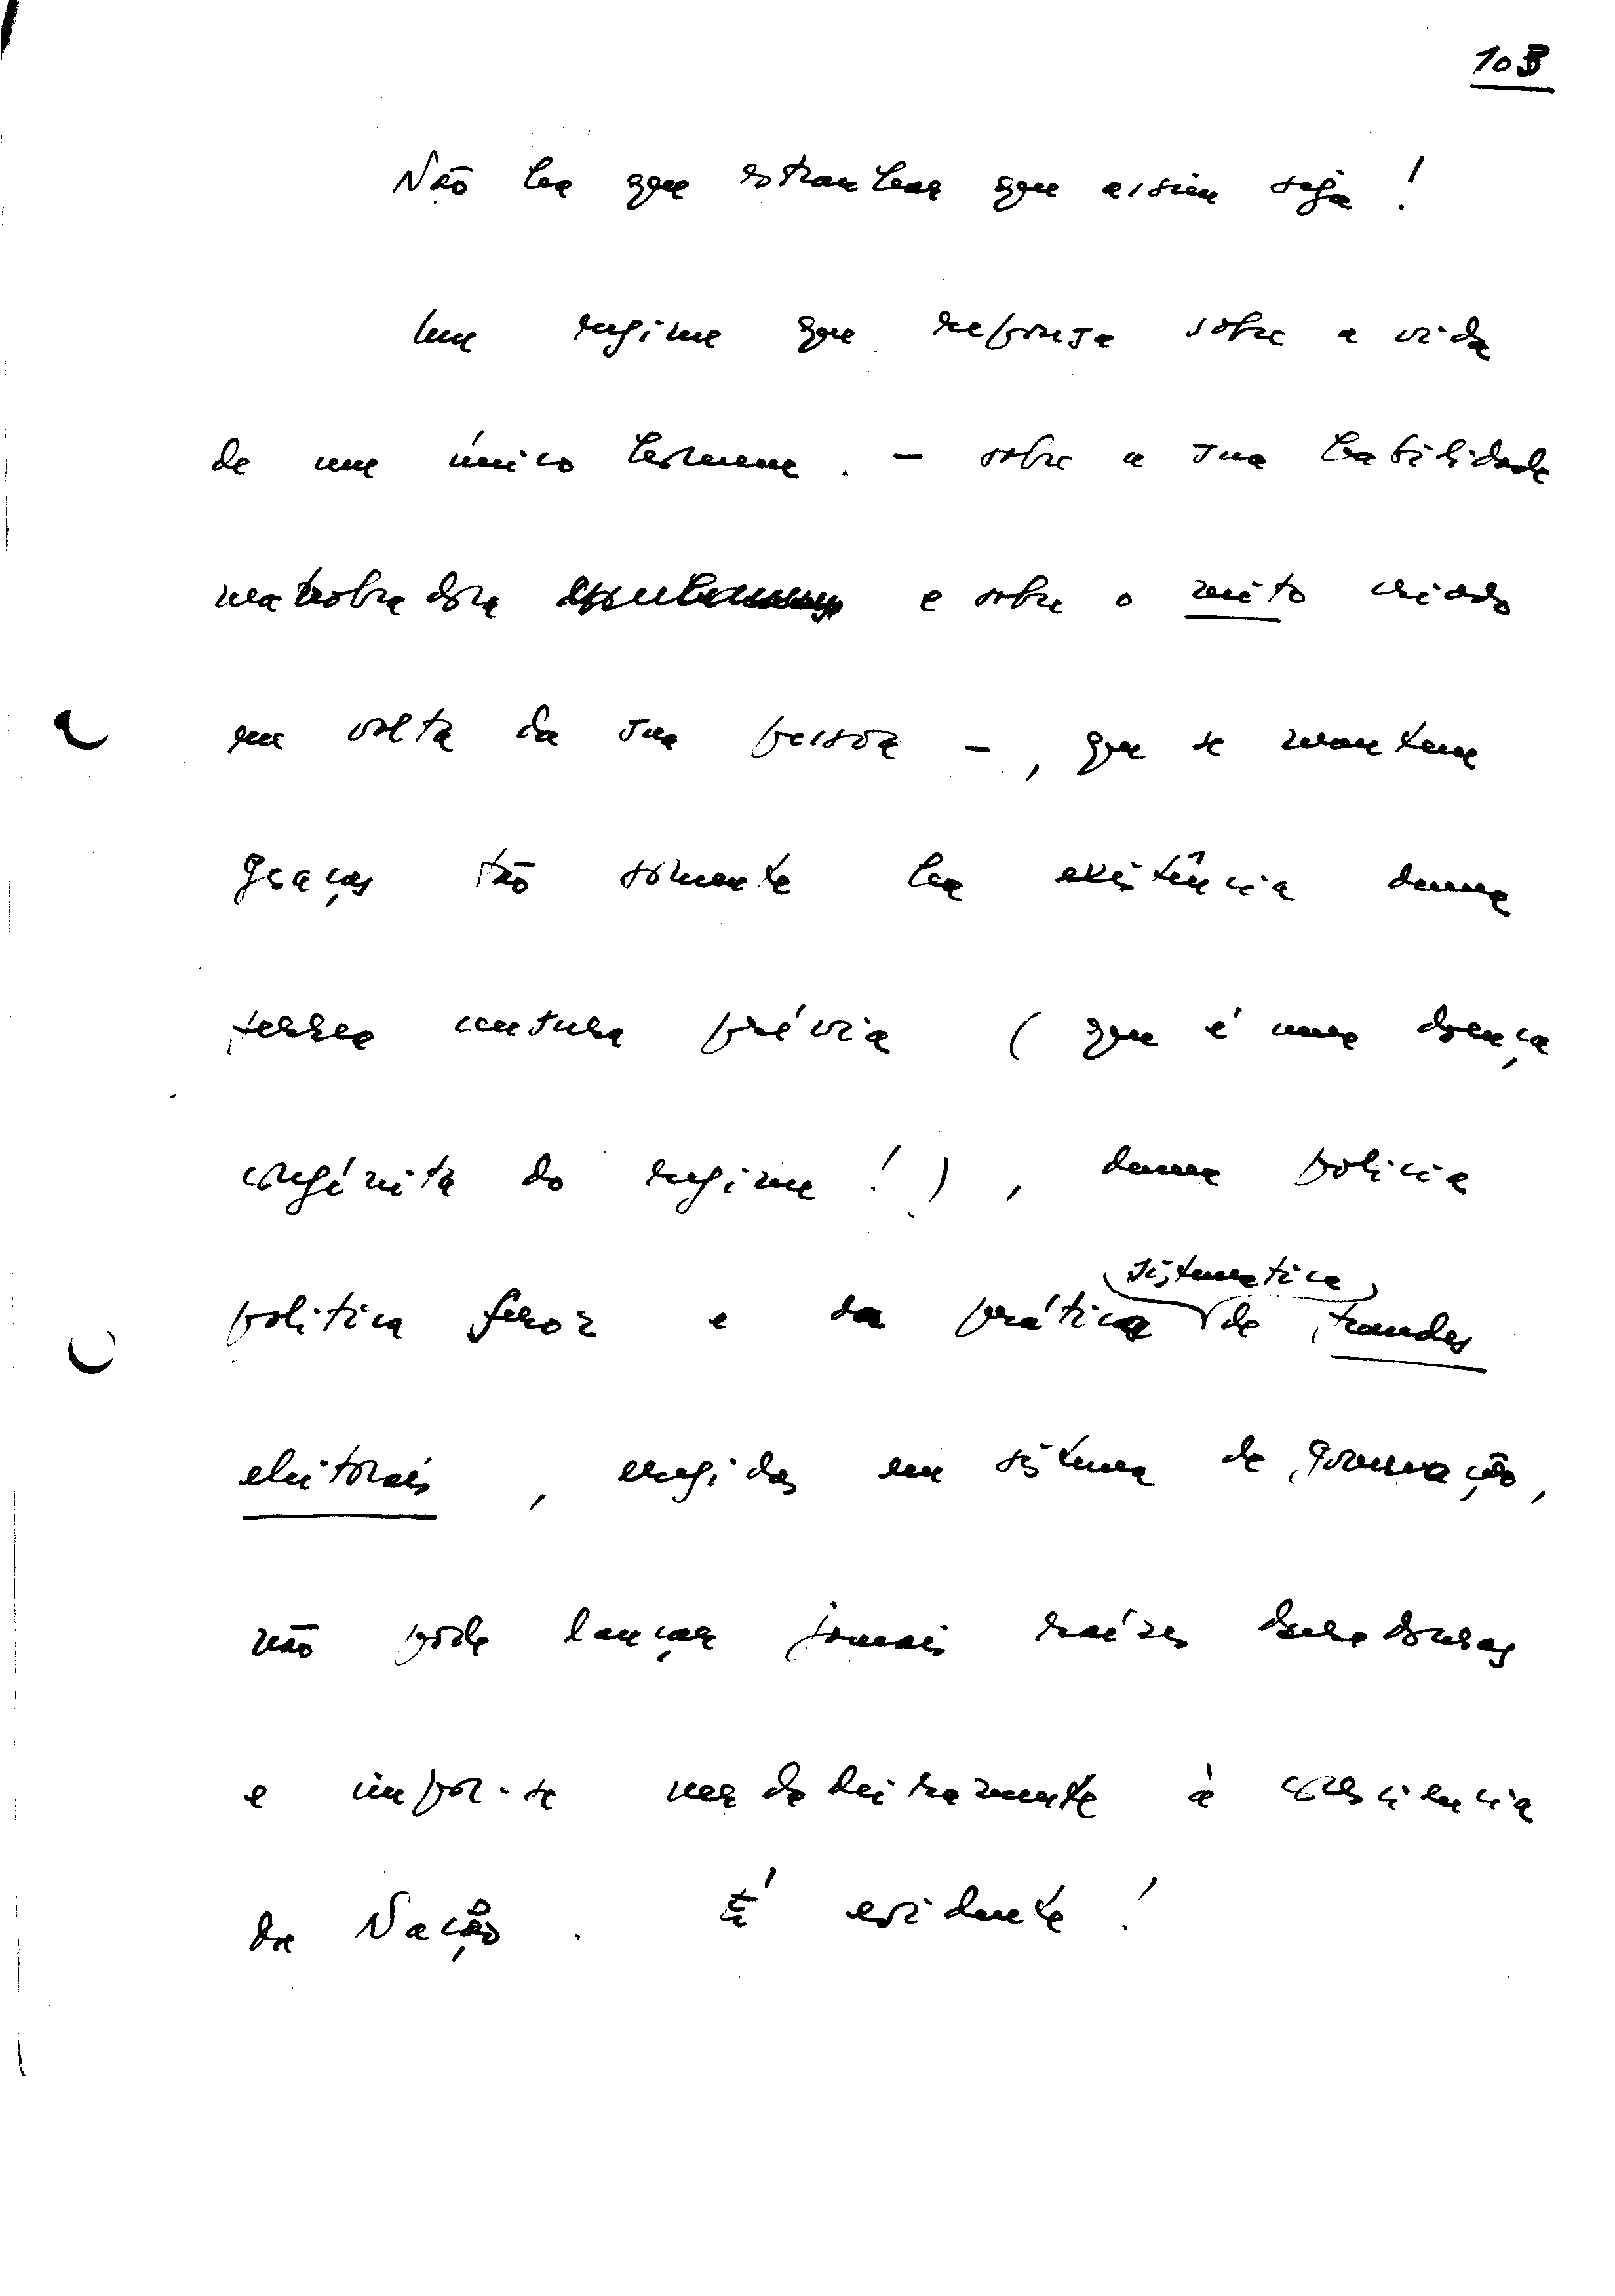 103
Não ha que estranhar que assim seja!
Um regime que repousa sobre a vida
de um único homem. - sobre a sua habilidade
manobradora e sobre o mito criado
em volta da sua pessoa -, que se mantem
graças tão sómente ha existência duma
ferrea censura prévia (que é uma doença
congénita do regime!), duma policia
politica feroz e da prática sistematica de fraudes
eleitorais, erigidas em sistema de governação,
não pode lançar jamais raízes duradouras
e impor-se verdadeiramente à consciencia
da Nação. É evidente!